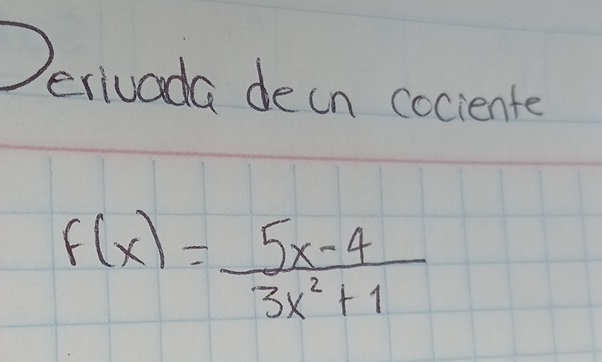 Derivada de un cociente
f(x) = \frac{5x-4}{3x^2+1}